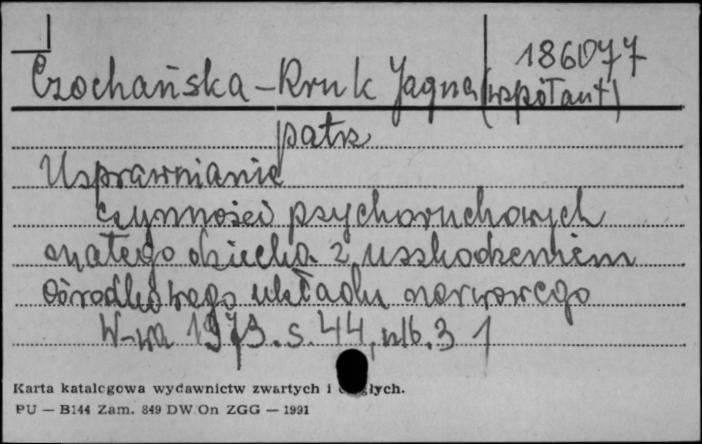 186077
Czochańska-Kruk Jagna (współaut)
patrz
Usprawnianie
czynności psychoruchowych
małego dziecka z uszkodzeniem
ośrodkowego układu nerwowego
W-wa 1973. s. 44, nlb. 3 1
Karta katalogowa wydawnictw zwartych i ciągłych.
PU — B144 Zam. 849 DW/On ZGG — 1991